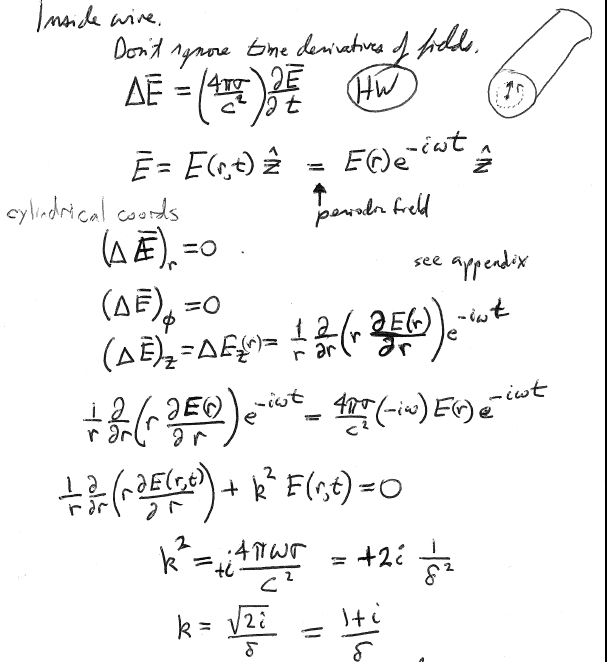 Inside wire.
Don't ignore time derivatives of fields.
ΔĒ = (4πσ/c²) ∂Ē/∂t   HW
Ē = E(r,t) ẑ = E(r) e^{-iωt} ẑ
↑
periodic field
cylindrical coords
(ΔĒ)_r = 0 .
see appendix
(ΔĒ)_φ = 0
(ΔĒ)_z = ΔE_z(r) = 1/r ∂/∂r (r ∂E(r)/∂r) e^{-iωt}
1/r ∂/∂r (r ∂E(r)/∂r) e^{-iωt} = 4πσ/c² (-iω) E(r) e^{-iωt}
1/r ∂/∂r (r ∂E(r,t)/∂r) + k² E(r,t) = 0
k² = +i 4πωσ/c² = +2i 1/δ²
k = √2i/δ = 1+i/δ